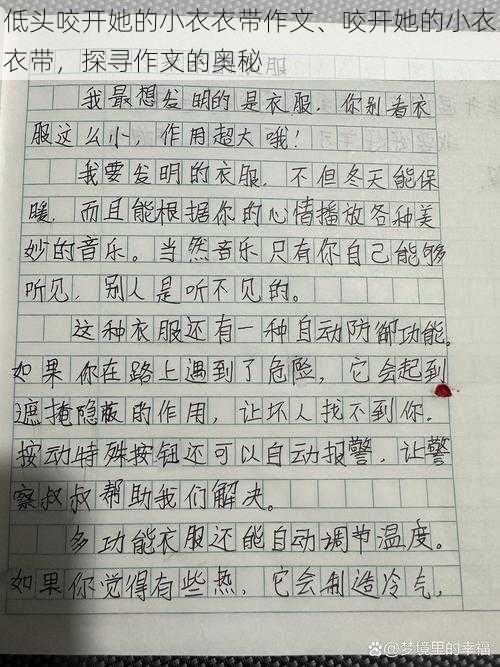 低头咬开她的小衣衣带作文、咬开她的小衣
衣带，探寻作文的奥秘
我最想发明的是衣服，你别看衣
服这么小，作用超大哦！
我要发明的衣服，不但冬天能保
暖，而且能根据你的心情播放各种美
妙的音乐。当然音乐只有你自己能够
听见，别人是听不见的。
这种衣服还有一种自动防御功能。
如果你在路上遇到了危险，它会起到
遮掩隐蔽的作用，让坏人找不到你。
按动特殊按钮还可以自动报警，让警
察叔叔帮助我们解决。
多功能衣服还能自动调节温度。
如果你觉得有些热，它会制造冷气，
百家号/梦境里的幸福